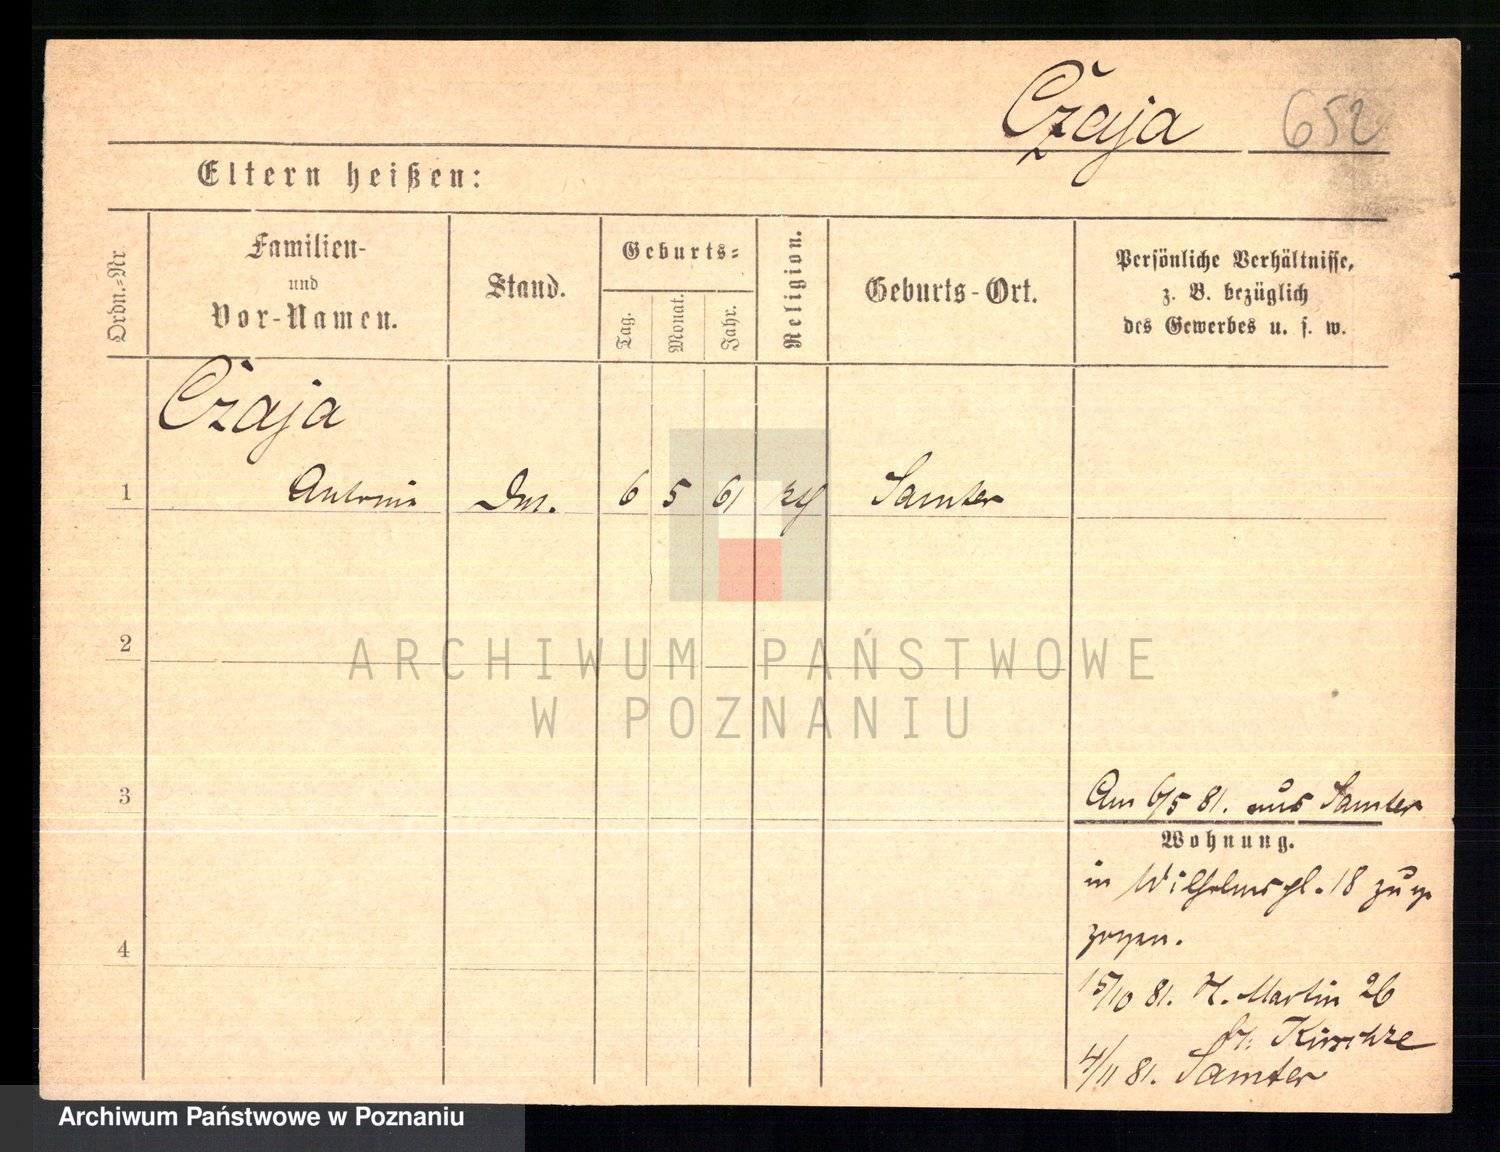 Czaja 652
Eltern heißen:
Ordn.-Nr
Familien-
und
Vor-Namen.
Stand.
Geburts-
Tag.
Monat.
Jahr.
Religion.
Geburts-Ort.
Persönliche Verhältnisse,
z. B. bezüglich
des Gewerbes u. s. w.
Czaja
1 Antonie 6 5 61 Samter
2
ARCHIWUM PAŃSTWOWE
W POZNANIU
3
Am 6/5 81. aus Samter
Wohnung.
in Wilhelmspl. 18 zuge
zogen.
4
15/10 81. St. Martin 26
bei Kirschke
4/11 81. Samter
Archiwum Państwowe w Poznaniu